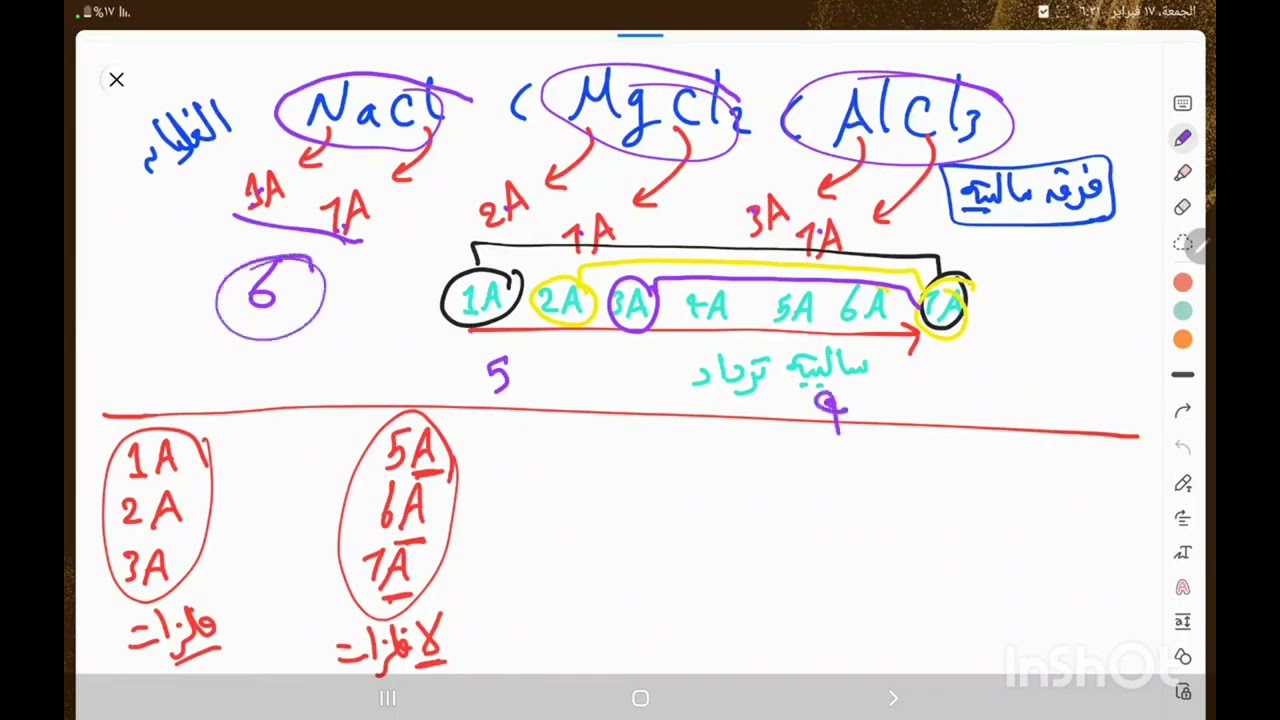 الجمعة، ١٧ فبراير ٦:٣١
%١٧
NaCl , MgCl2 , AlCl3
1A 7A 2A 7A 3A 7A
فرق سالبية
6
1A 2A 3A 4A 5A 6A 7A
5 سالبية تزداد 9
1A 5A
2A 6A
3A 7A
فلزات لا فلزات
InShOt